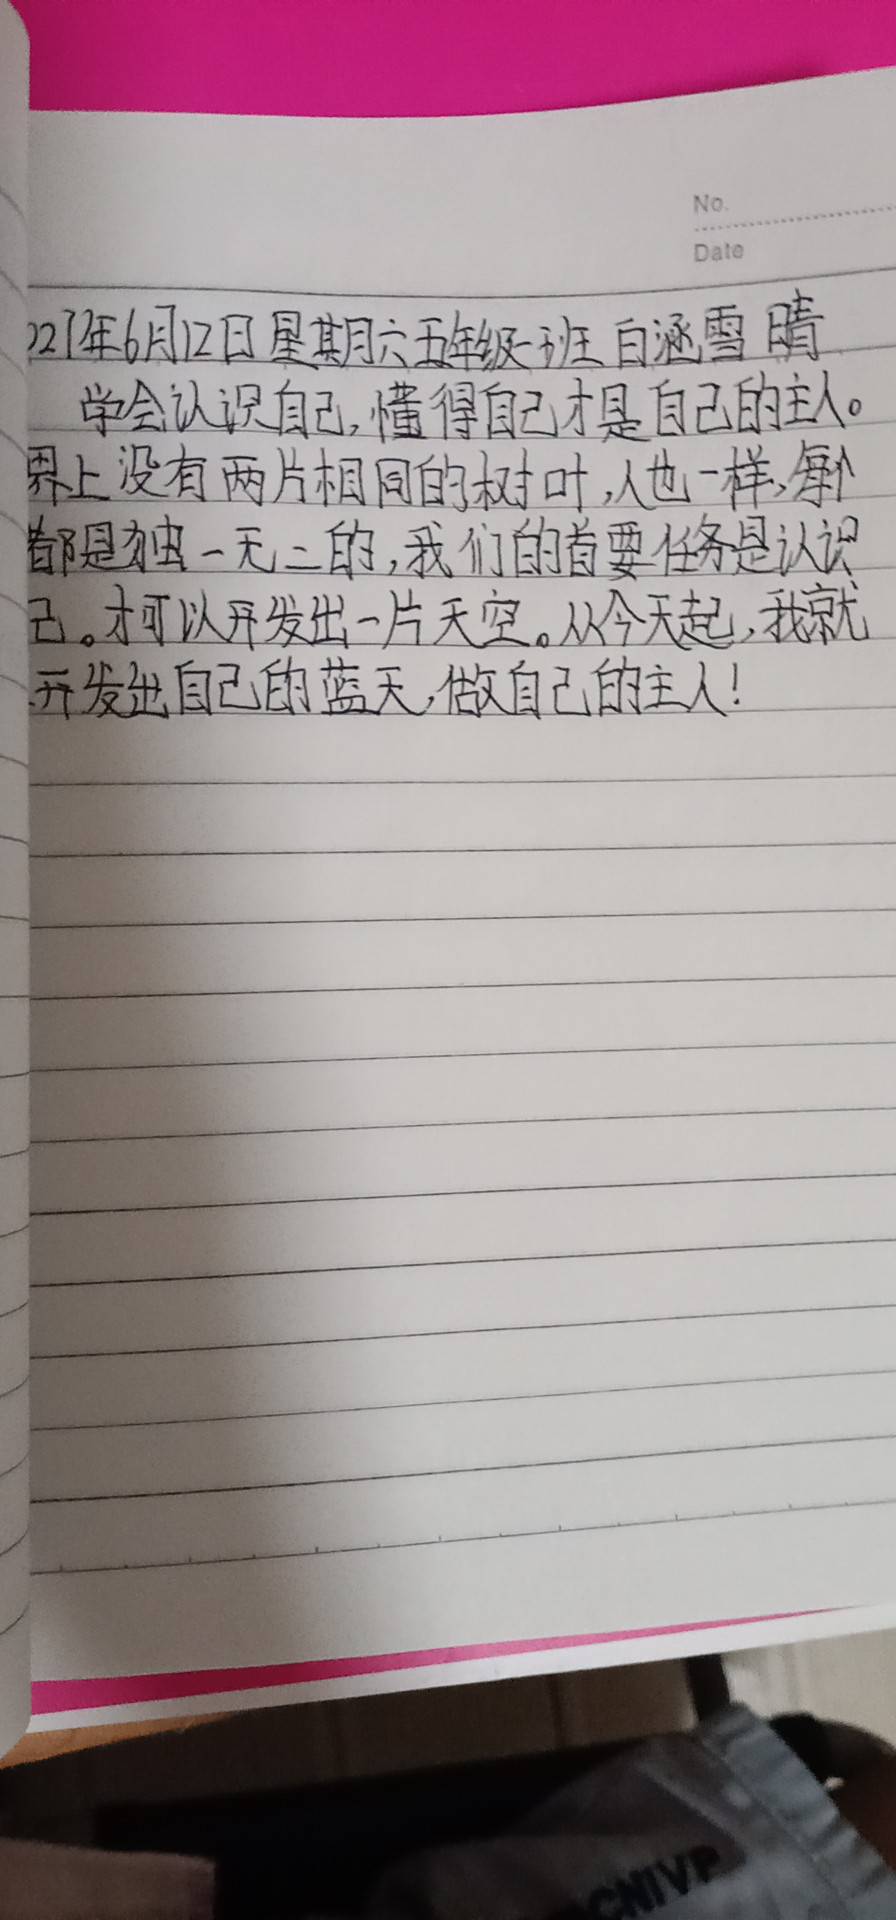 No.
Date
2021年6月12日星期六五年级一班 白涵雪 晴
学会认识自己,懂得自己才是自己的主人。
界上没有两片相同的树叶,人也一样,每个
都是独一无二的,我们的首要任务是认识
己。才可以开发出一片天空。从今天起,我就
开发出自己的蓝天,做自己的主人!
CNIVP